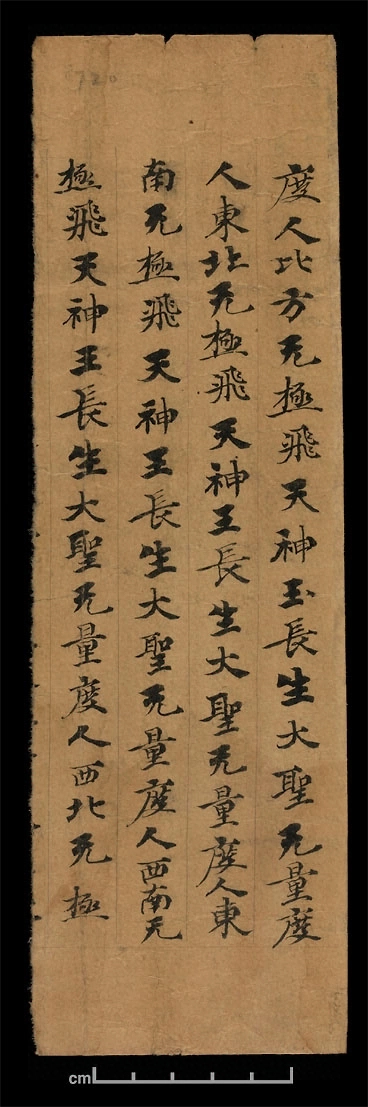 度人北方无極飛天神王長生大聖无量度
人東北无極飛天神王長生大聖无量度人東
南无極飛天神王長生大聖无量度人西南无
極飛天神王長生大聖无量度人西北无極
720
cm